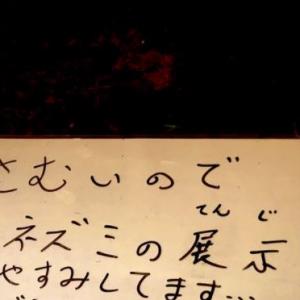 さむいので
てんじ
ネズミの展示
やすみしてます…